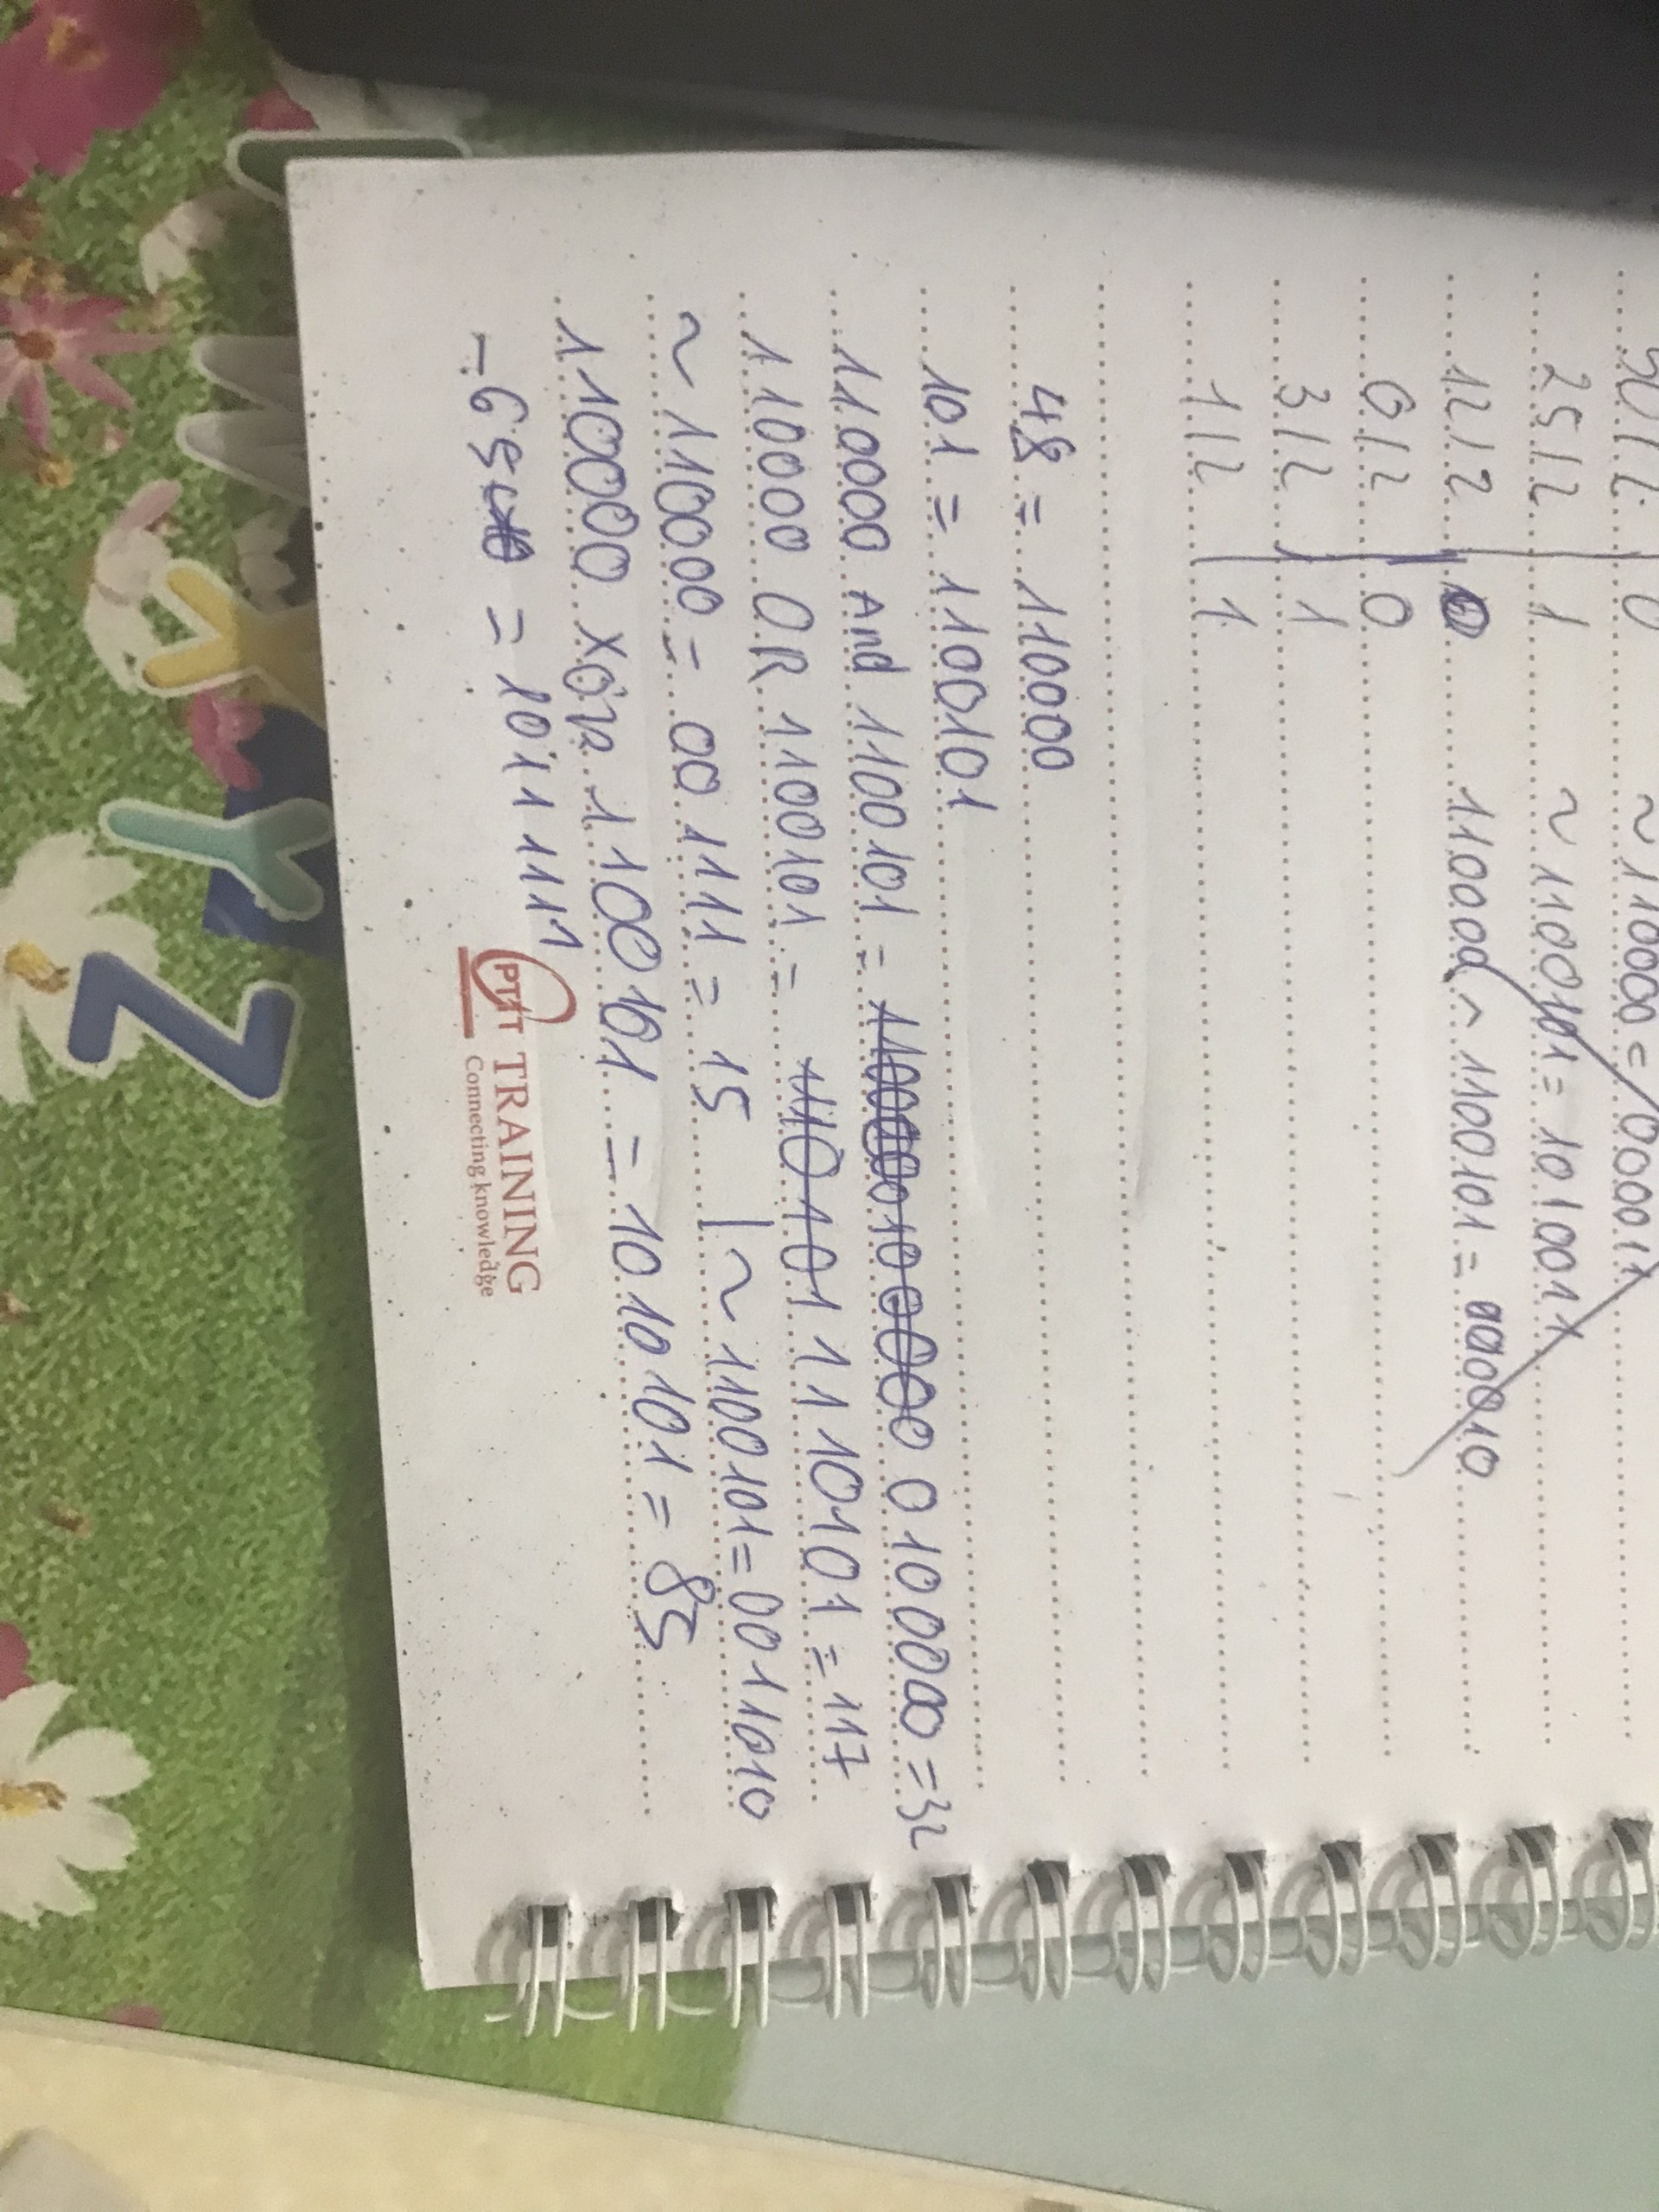 50 / 2 | 0 ~ 110000 = 00001
25 / 2 | 1 ~ 1100101 = 101001
12 / 2 | 0 110000 ^ 1100101 = 000010
6 / 2 | 0
3 / 2 | 1
1 / 2 | 1
48 = 110000
101 = 1100101
110000 And 1100101 = 0100000 = 32
110000 OR 1100101 = 1110101 = 117
~ 110000 = 001111 = 15 | ~ 1100101 = 0011010
110000 XOR 1100101 = 1010101 = 85
-65 = 1011111
PT IT TRAINING
Connecting knowledge
Y
Y
Z